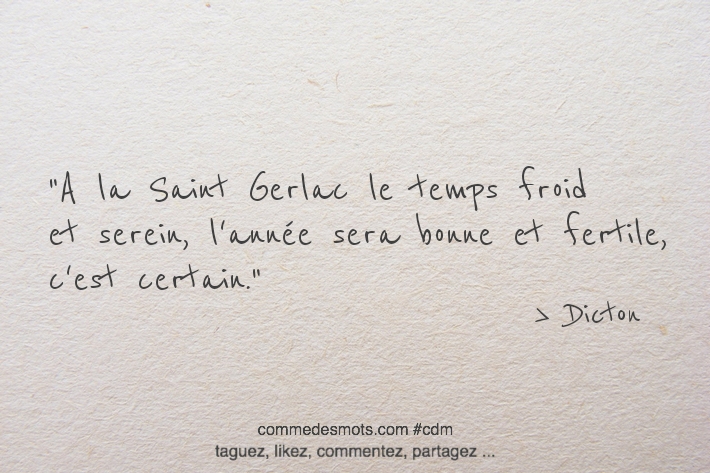 "A la Saint Gerlac le temps froid
et serein, l'année sera bonne et fertile,
c'est certain."
> Dicton
commedesmots.com #cdm
taguez, likez, commentez, partagez ...